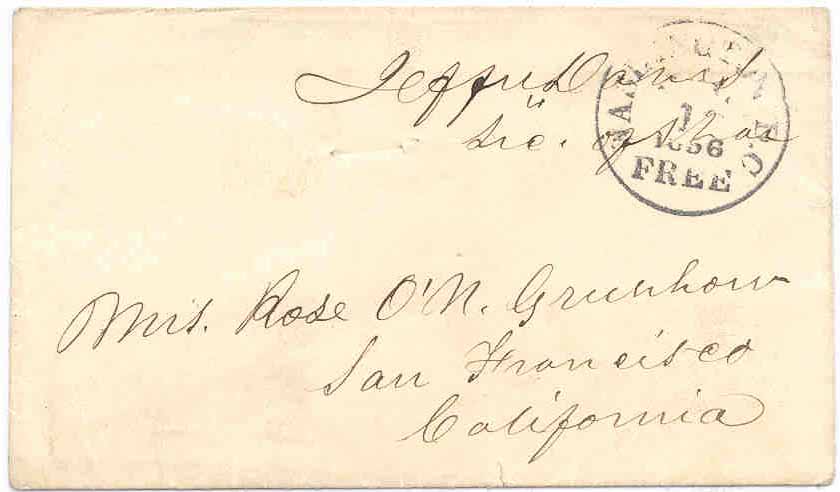 Jeffn Davis
Sec. of War
WASHINGTON D.C.
1
1856
FREE
Mrs. Rose O'N. Greenhow
San Francisco
California